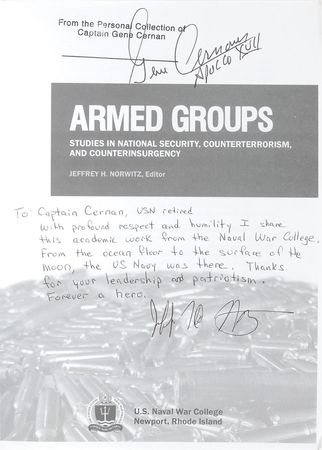 From the Personal Collection of
Captain Gene Cernan
Gene Cernan
APOLLO XVII
ARMED GROUPS
STUDIES IN NATIONAL SECURITY, COUNTERTERRORISM,
AND COUNTERINSURGENCY
JEFFREY H. NORWITZ, Editor
To Captain Cernan, USN retired
with profound respect and humility I share
this academic work from the Naval War College.
From the ocean floor to the surface of the
moon, the US Navy was there. Thanks
for your leadership and patriotism.
Forever a hero.
U.S. Naval War College
Newport, Rhode Island